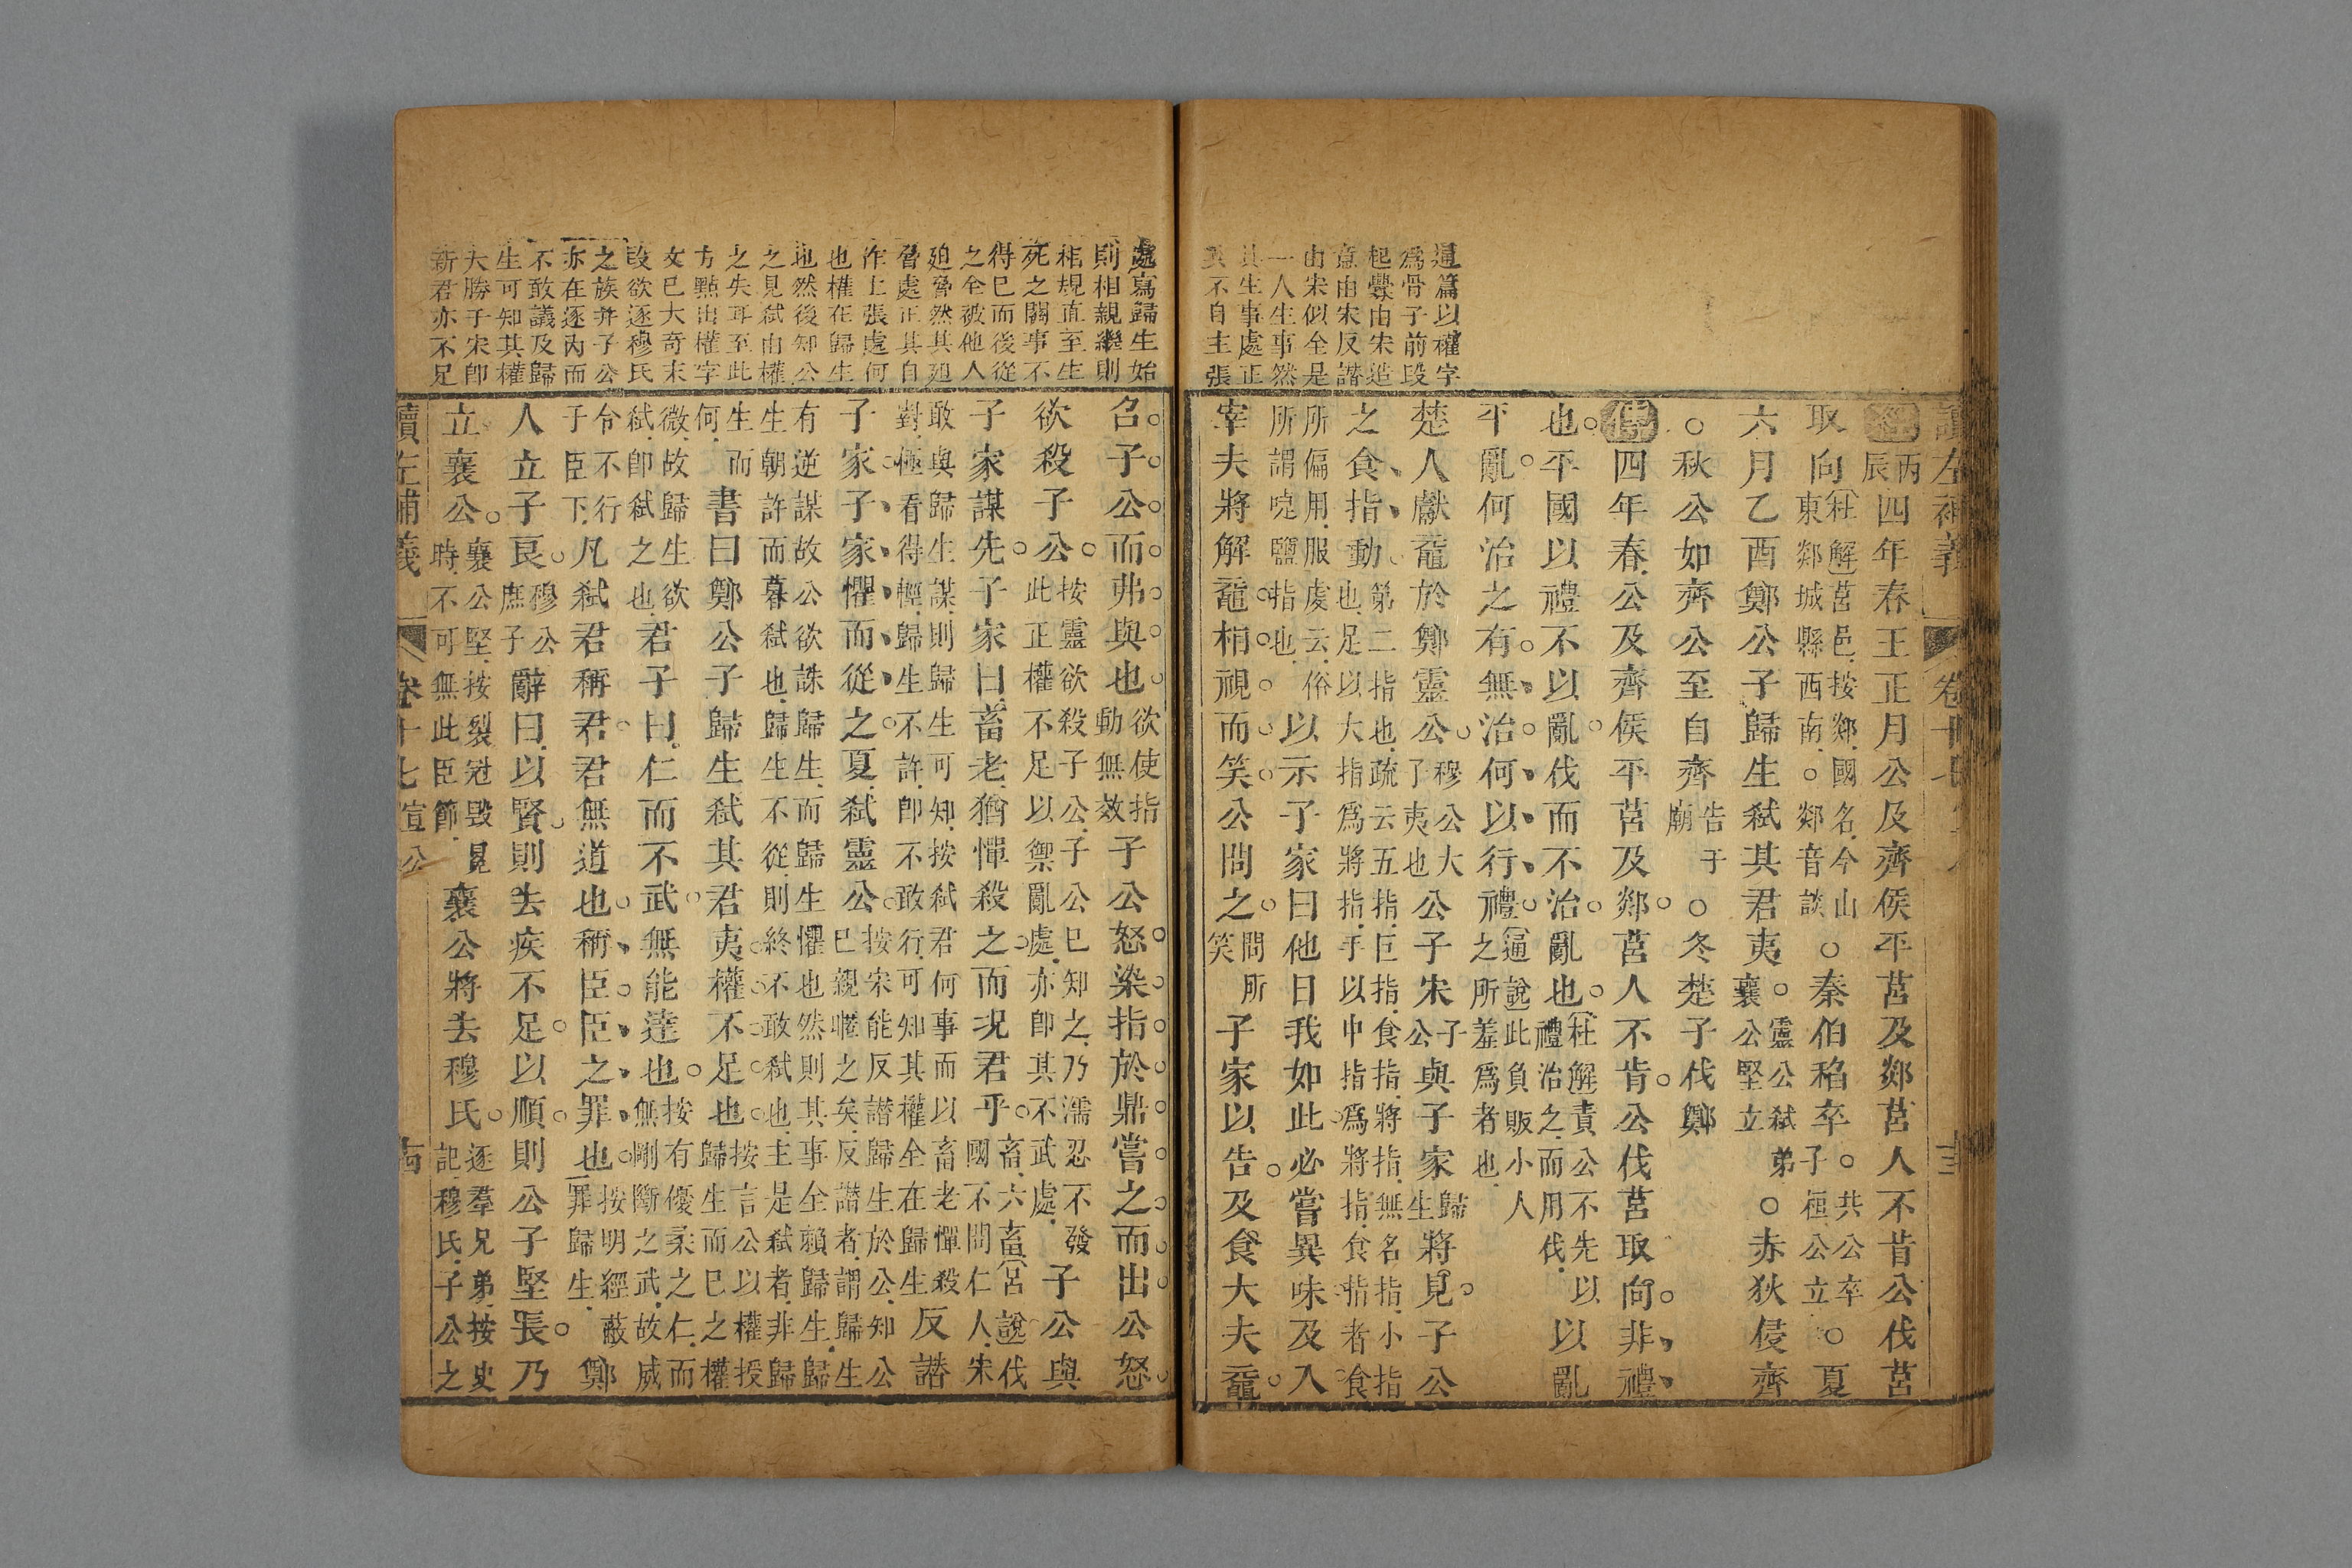 讀左補義 卷十七
通篇以權字
為骨子前段
起釁由宋造
意由宋反譖
由宋似全是
一人生事然
其生事處正
莫不自主張
經丙辰四年春王正月公及齊侯平莒及郯莒人不肯公伐莒
取向杜解莒邑按郯國名今山東郯城縣西南○郯音談○秦伯稻卒共公卒子桓公立○夏
六月乙酉鄭公子歸生弒其君夷靈公弒弟襄公堅立○赤狄侵齊
○秋公如齊公至自齊告于廟○冬楚子伐鄭
傳四年春公及齊侯平莒及郯莒人不肯公伐莒取向非禮
也平國以禮不以亂伐而不治亂也杜解責公不先以禮治之而用伐以亂
平亂何治之有無治何以行禮通說此負販小人之所羞為者也
楚人獻黿於鄭靈公穆公大子夷也公子宋子公與子家歸生將見子公
之食指動第二指也疏云五指巨指食指將指無名指小指也足以大指為將指手以中指為將指食指者食
所偏用服虔云俗所謂嗁鹽指也以示子家曰他日我如此必嘗異味及入
宰夫將解黿相視而笑公問之問所笑子家以告及食大夫黿
處寫歸生始
則相親繼則
相規直至生
死之關事不
得已而後從
之全被他人
廹脅然其廹
脅處正其自
作主張處何
也權在歸生
也然後知公
之見弒由權
之失耳至此
方點出權字
文已大奇末
段欲逐穆氏
之族幷子公
亦在逐內而
不敢議及歸
生可知其權
大勝于宋卽
新君亦不足
召子公而弗與也欲使指動無效子公怒染指於鼎嘗之而出公怒
欲殺子公按靈欲殺子公子公已知之乃濡忍不發此正權不足以禦亂處亦卽其不武處子公與
子家謀先子家曰畜老猶憚殺之而況君乎畜六畜呂說伐國不問仁人宋
敢與歸生謀則歸生可知按弒君何事而以畜老憚殺對極看得輕歸生不許卽不敢行可知其權全在歸生反譖
子家子家懼而從之夏弒靈公按宋能反譖歸生於公知公已親暱之矣反譖者謂歸生
有逆謀故公欲誅歸生而歸生懼也然則其事全賴歸生歸生朝許而暮弒也歸生不從則終不敢弒也主是弒者非歸
生而何書曰鄭公子歸生弒其君夷權不足也按言公以權授歸生而已之權
微故歸生欲弒卽弒之也君子曰仁而不武無能達也按有優柔之仁而無剛斷之武故威
令不行于臣下凡弒君稱君君無道也稱臣臣之罪也按明經蔽罪歸生鄭
人立子良穆公庶子辭曰以賢則去疾不足以順則公子堅長乃
立襄公襄公堅按裂冠毀冕時不可無此臣節襄公將去穆氏逐羣兄弟按史記穆氏子公之
讀左補義 卷十七 宣公